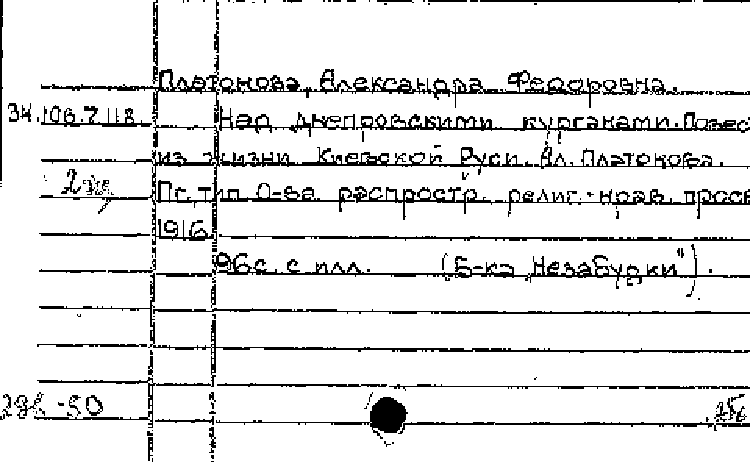 Платонова, Александра Федоровна.
34.106.7.118. Над днепровскими курганами. Повес
из жизни Киевской Руси. Ал. Платонова.
2 экз Пг, тип. О-ва распростр. религ.-нрав. просв
1916.
96с. с илл. (Б-ка „Незабудки").
-50